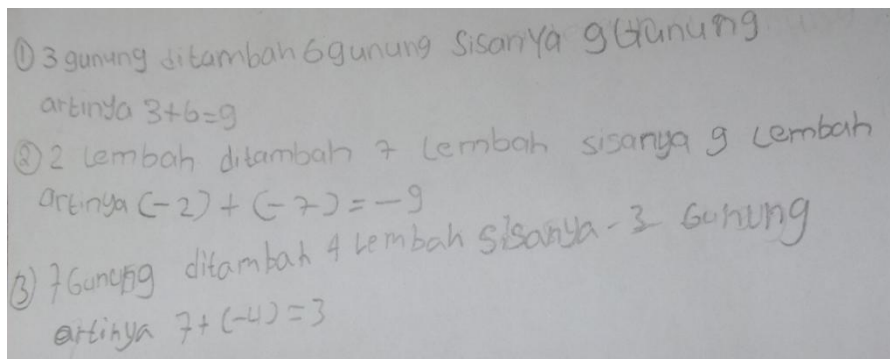 ① 3 gunung ditambah 6 gunung sisanya 9 Gunung
artinya 3+6=9
② 2 Lembah ditambah 7 Lembah sisanya 9 Lembah
artinya (-2) + (-7) = -9
③ 7 Gunung ditambah 4 Lembah sisanya - 3 Gunung
artinya 7 + (-4) = 3